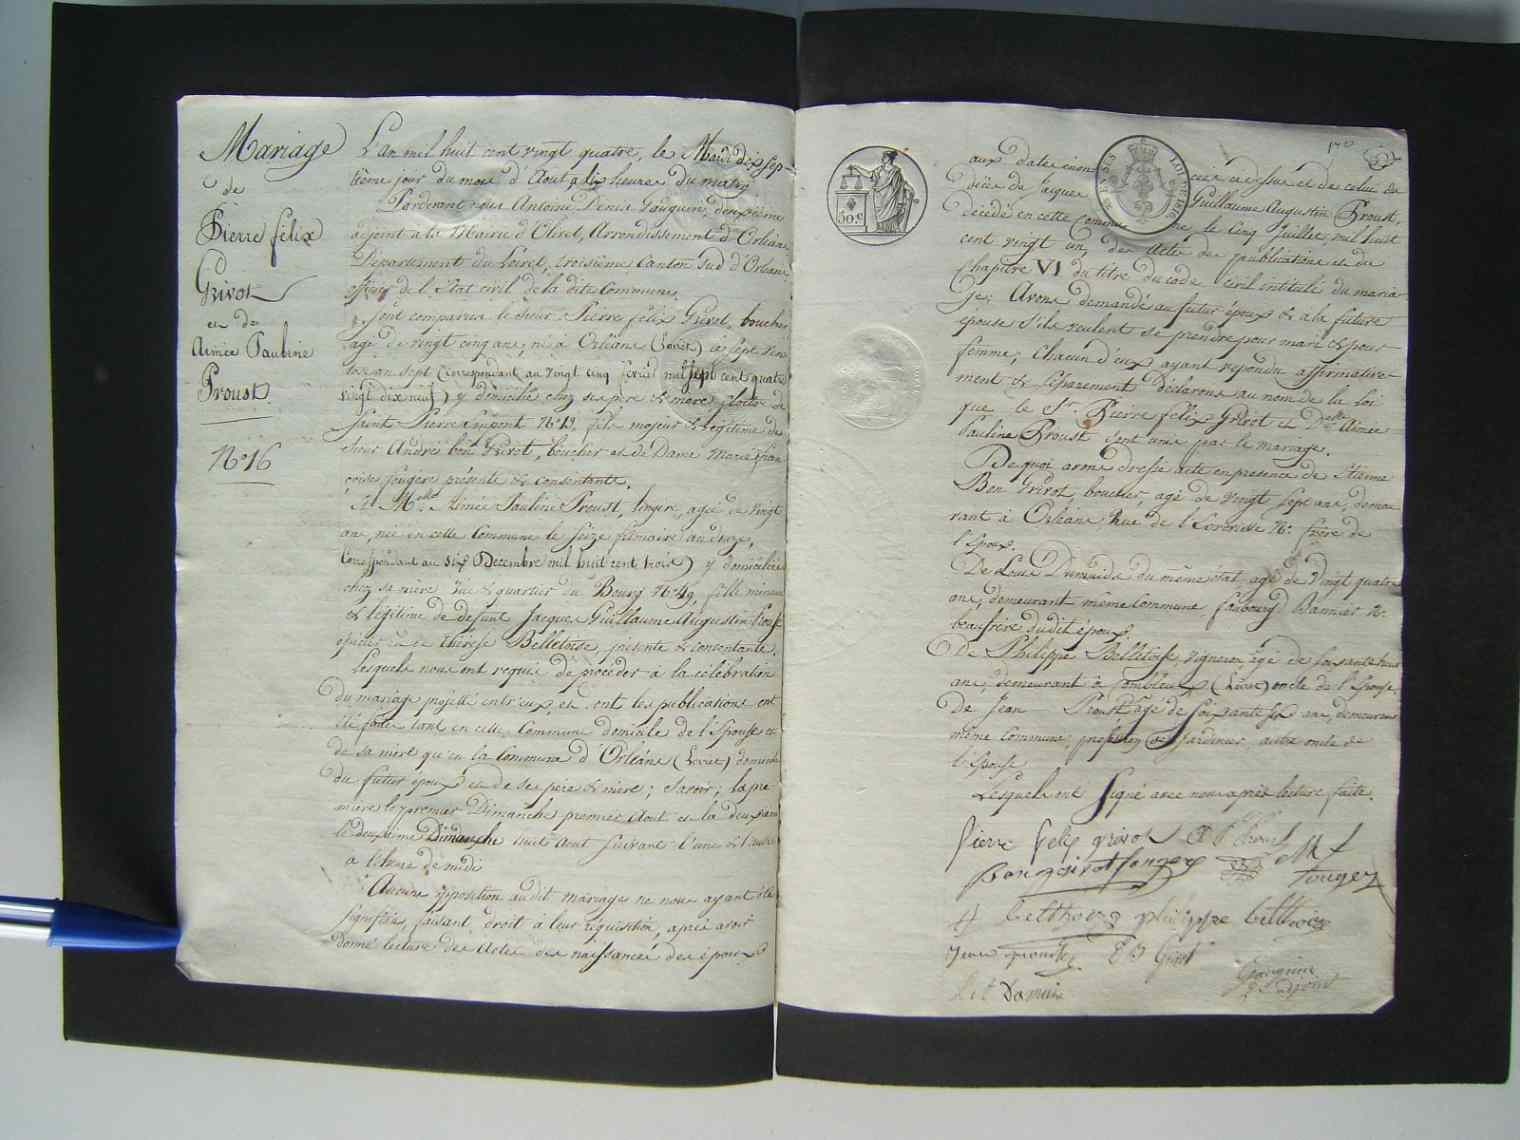 Mariage
de
Pierre felix
Grivot
et de
Aimée Pauline
Proust
N° 16
L'an mil huit cent vingt quatre, le Mardi dix sep-
tième jour du mois d'Aout à dix heures du matin,
Pardevant nous Antoine Denis Gauguin, deuxième
adjoint à la Mairie d'Olivet, Arrondissement d'Orléans
Département du Loiret, troisième Canton Sud d'Orléans,
officier de l'Etat civil de la dite Commune,
Sont comparus le sieur Pierre félix Grivot, boucher
agé de vingt cinq ans, né à Orléans (Loiret) le sept ven
tose an sept (correspondant au vingt cinq février mil sept cent quatre
vingt dix neuf) y domicilié chez ses père et mère, cloitre de
Saint Pierre Empont N° 19, fils majeur et légitime de
sieur André bon Grivot, boucher et de Dame Marie fran
coises fougere présents et consentants.
Et Melle Aimée Pauline Proust, lingère, agée de vingt
ans, née en cette Commune le seize frimaire an douze,
(correspondant au six Decembre mil huit cent trois) y domiciliée
chez sa mère rue et quartier du Bourg N° 49, fille mineure
et légitime de defunt Jacques Guillaume Augustin Proust
et de Thérèse Belletoise, présente et consentante.
Lesquels nous ont requis de procéder à la célébration
du mariage projetté entr'eux, et dont les publications ont
été faites tant en cette Commune domicile de l'Epouse et
de sa mère qu'en la Commune d'Orléans (Loiret) domicile
du futur époux et de ses père et mère; Savoir; la pre
mière le premier Dimanche premier Aout et la deuxième
le deuxième Dimanche huit Aout suivant l'une et l'autre
a l'heure de midi
Aucune opposition audit mariage ne nous ayant été
signifiée, faisant droit à leur réquisition, après avoir
donné lecture des Actes des naissances des époux
50 c
aux dates énoncées cidessus et de celui de
décès de Jacques Guillaume Augustin Proust,
décédé en cette Commune, le cinq Juillet, mil huit
cent vingt un, des Actes des publications et du
Chapitre VI du titre du code Civil intitulé du maria-
ge; Avons demandé au futur époux et à la future
épouse s'ils veulent se prendre pour mari et pour
femme; Chacun d'eux ayant repondu affirmative-
ment et séparement Déclarons au nom de la loi
que le Sr. Pierre félix Grivot et Delle Aimée
Pauline Proust sont unis par le mariage.
De quoi avons dressé acte en présence de Etienne
Bon Grivot, boucher, agé de vingt sept ans, demeu
rant à Orléans, Rue de N° frère de
l'époux.
De Louis du même état, agé de vingt quatre
ans, demeurant même Commune faubourg Bannier N°
beaufrère dudit époux.
De Philippe Belletoise, vigneron, agé de soixante huit
ans, demeurant à Combleux (Loiret) oncle de l'Epouse,
De Jean Proust, agé de soixante six ans, demeurant
même Commune, profession de Jardinier, autre oncle de
l'Epouse
Lesquels ont signé avec nous après lecture faite.
pierre felix grivot A P Proust
Bon grivot fougere M f
fougere
belthoise philippe belthoise
E B Grivot
Gauguin
adjoint